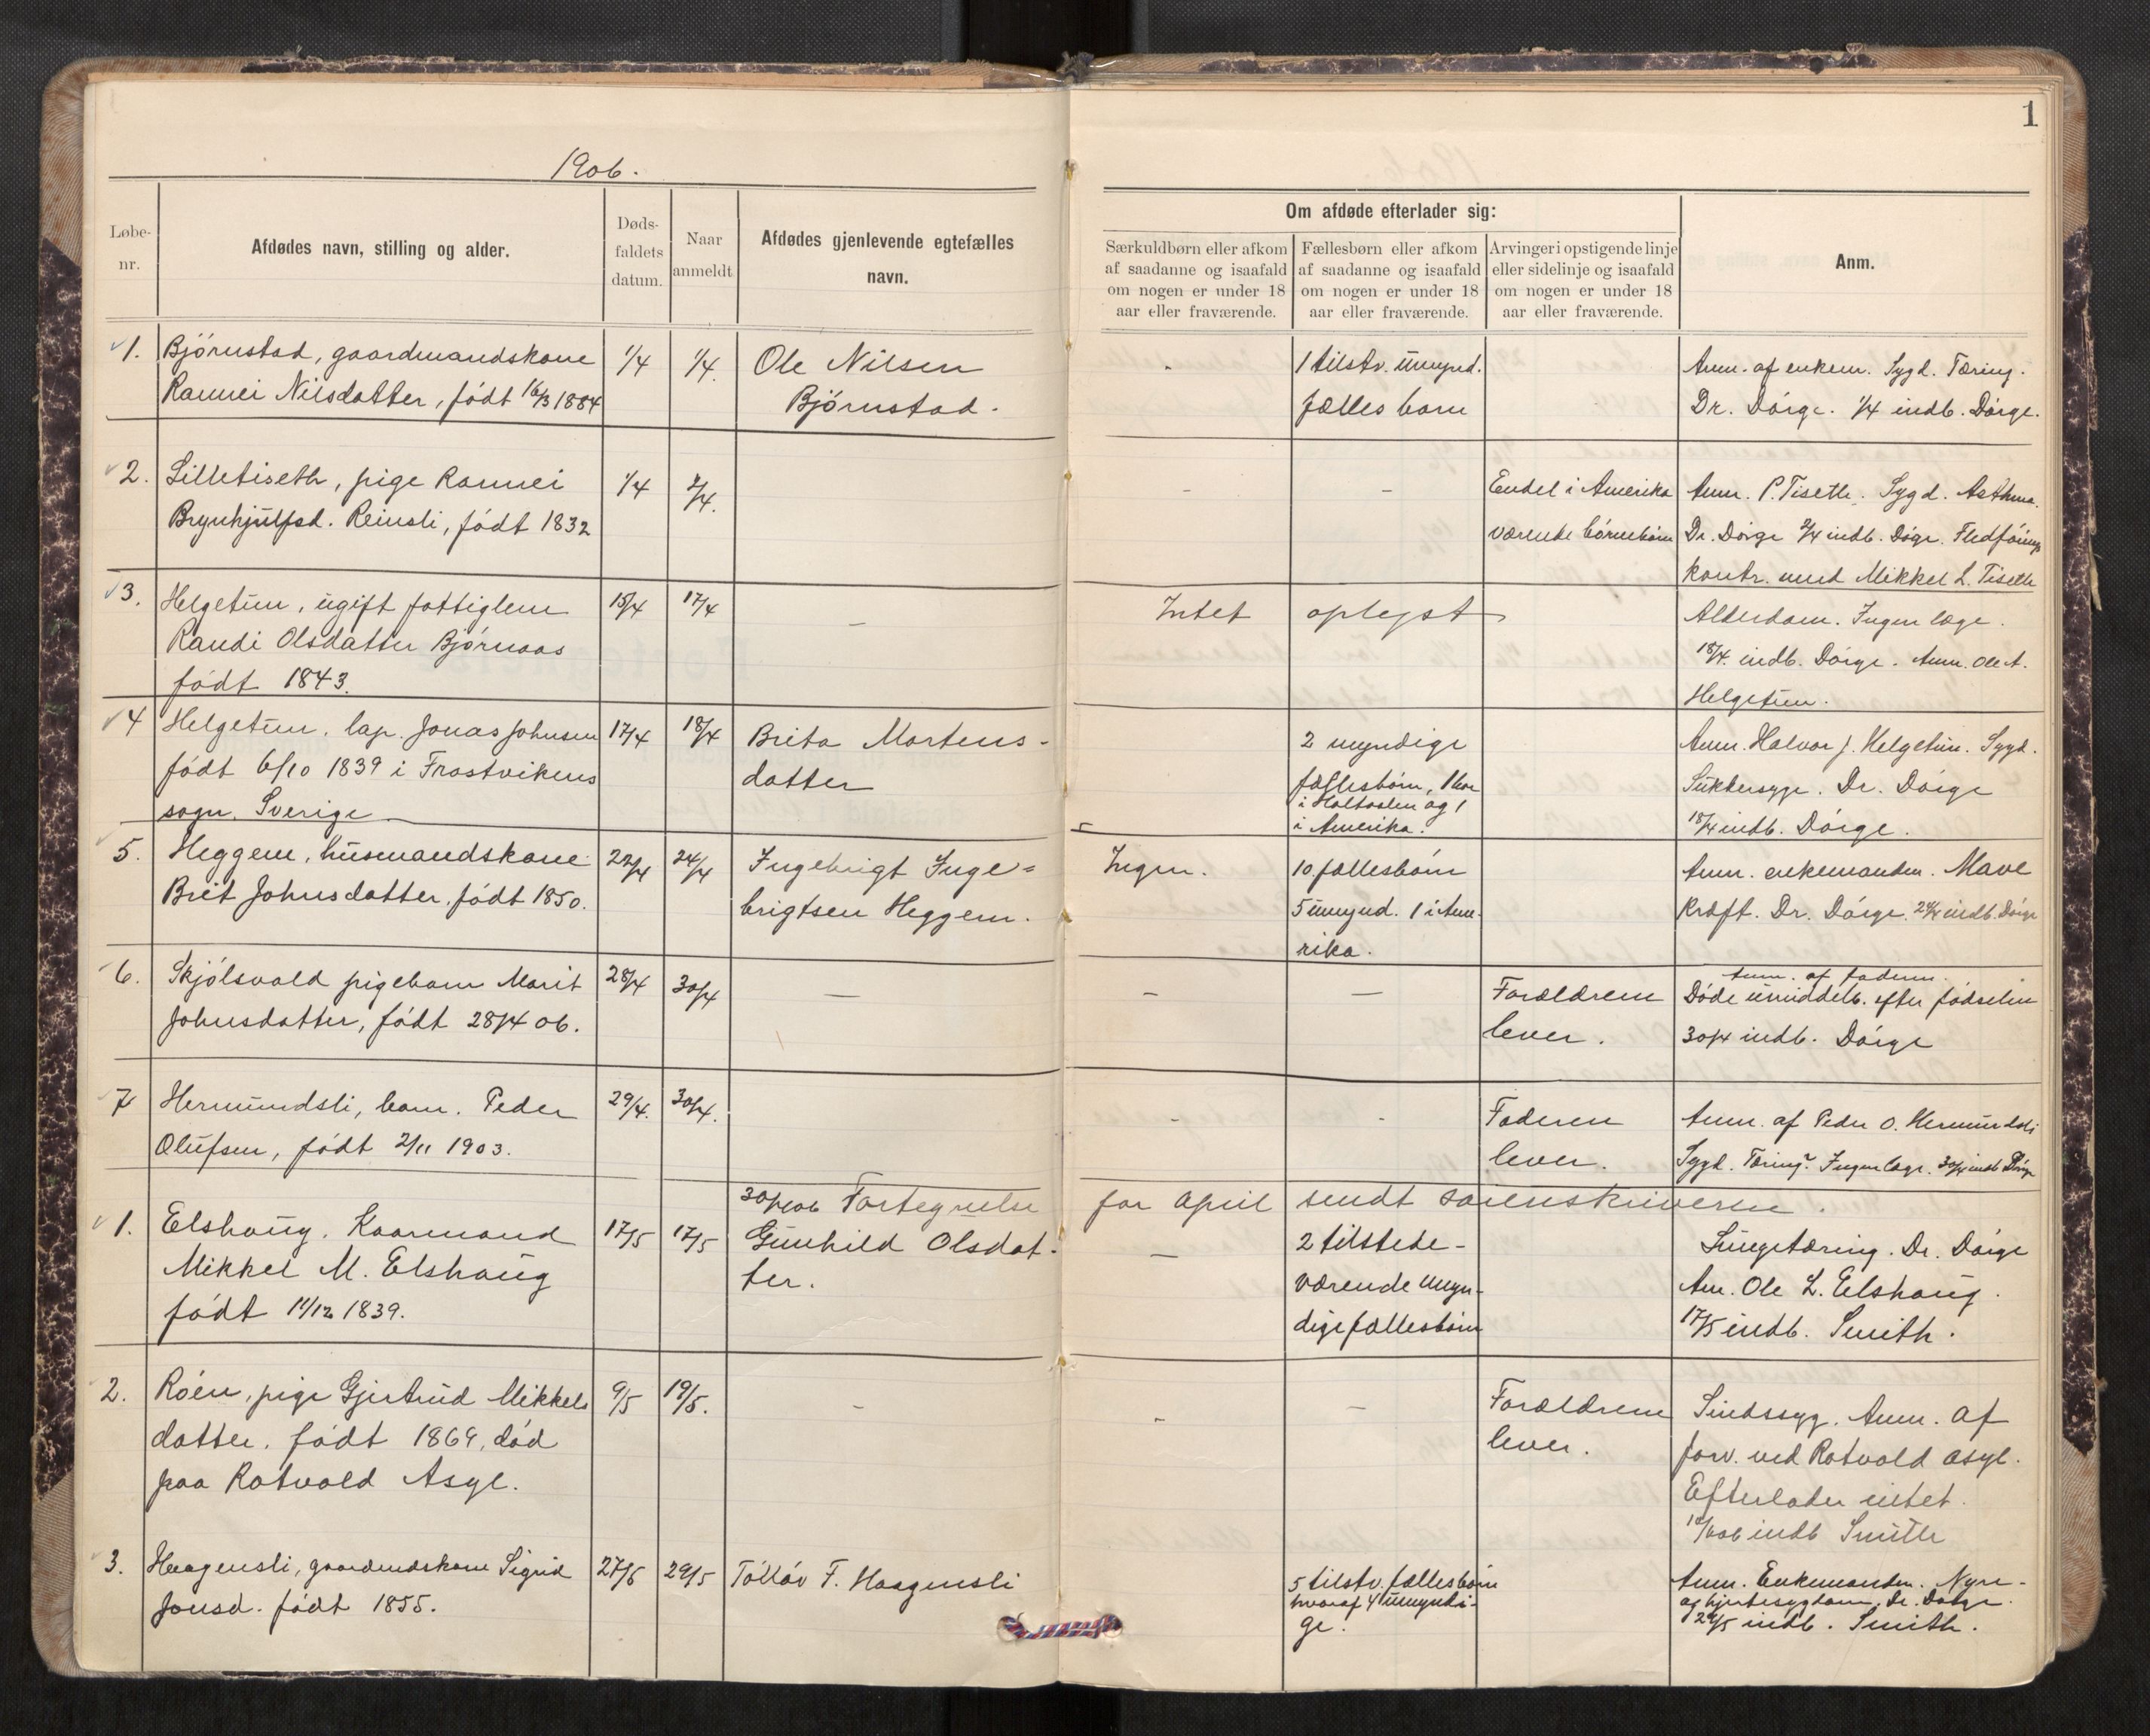 1
1906.
Løbe-
nr.
Afdødes navn, stilling og alder.
Døds-
faldets
datum.
Naar
anmeldt
Afdødes gjenlevende egtefælles
navn.
Om afdøde efterlader sig:
Særkuldbørn eller afkom
af saadanne og isaafald
om nogen er under 18
aar eller fraværende.
Fællesbørn eller afkom
af saadanne og isaafald
om nogen er under 18
aar eller fraværende.
Arvinger i opstigende linje
eller sidelinje og isaafald
om nogen er under 18
aar eller fraværende.
Anm.
1.
Bjørnstad, gaardmandskone
Rannei Nilsdatter, født 16/3 1884
1/4
1/4.
Ole Nilsen
Bjørnstad.
1 tilstv. umynd.
fælles barn
Anm. af enkem. Sygd. Tæring.
Dr. Dørge. 1/4 indb. Dørge.
2.
Lilletiseth, pige Rannei
Brynhjulfsd. Reinsli, født 1832
1/4
2/4.
-
-
Endel i Amerika
værende børnebørn
Anm. P. Tiseth. Sygd. Asthma.
Dr. Dørge 2/4 indb. Døge. Fledførings
kontr. med Mikkel L. Tiseth
3.
Helgetun, ugift fattiglem
Randi Olsdatter Bjørnaas
født 1843.
15/4
17/4
-
Intet oplyst
Alderdom. Ingen læge.
18/4. indb. Dørge. Anm. Ole A.
Helgetun.
4
Helgetun. lap. Jonas Johnsen
født 6/10 1839 i Frostvikens
sogn. Sverige
17/4
18/4
Brita Mortens-
datter
2 myndige
fællesbørn, 1 bor
i Holtaalen og 1
i Amerika.
Anm. Halvor J. Helgetun. Sygd.
Sukkersyge. Dr. Dørge
18/4 indb. Dørge.
5.
Heggem, husmandskone
Brit Johnsdatter, født 1850.
22/4
24/4
Ingebrigt Inge=
brigtsen Heggem.
Ingen.
10 fællesbørn
5 umynd. 1 i Ame-
rika.
Anm. enkemanden. Mave
kræft. Dr. Dørge. 24/4 indb. Dørge
6.
Skjølsvold pigebarn Marit
Johnsdatter, født 28/4 06.
28/4
30/4
-
-
-
Forældrene
lever.
Anm. af faderen.
Døde umiddelb. efter fødselen
30/4 indb. Dørge
7
Hermundsli, barn. Peder
Olufsen, født 2/11 1903.
29/4.
30/4.
-
-
Faderen
lever.
Anm. af Peder O. Hermundsli
Sygd. Tæring? Ingen læge. 30/4 indb Dørge
30/4 06 Fortegnelse for April sendt sorenskriveren.
1.
Elshaug. Kaarmand
Mikkel M. Elshaug
født 11/12 1839.
17/5
17/5
Gunhild Olsdat-
ter.
-
2 tilstede-
værende myn-
dige fællesbørn
Lungetæring. Dr. Dørge
Anm. Ole L. Elshaug.
17/5 indb. Smith.
2.
Røen, pige Gjertrud Mikkels
datter. født 1869, død
paa Rotvold Asyl.
9/5
19/5.
-
-
-
Forældrene
lever.
Sindssyg. Anm. af
forv. ved Rotvold asyl.
Efterlader intet.
indb Smith
3.
Haagensli, gaardmdskone Sigrid
Jonsd. født 1855.
27/5
29/5
Tølløv F. Haagensli
5 tilstv. fællesbørn
hvoraf 4 umyndi-
ge.
Anm. Enkemanden. Nyre-
og hjertesygdom. Dr. Dørge.
29/5 indb. Smith.